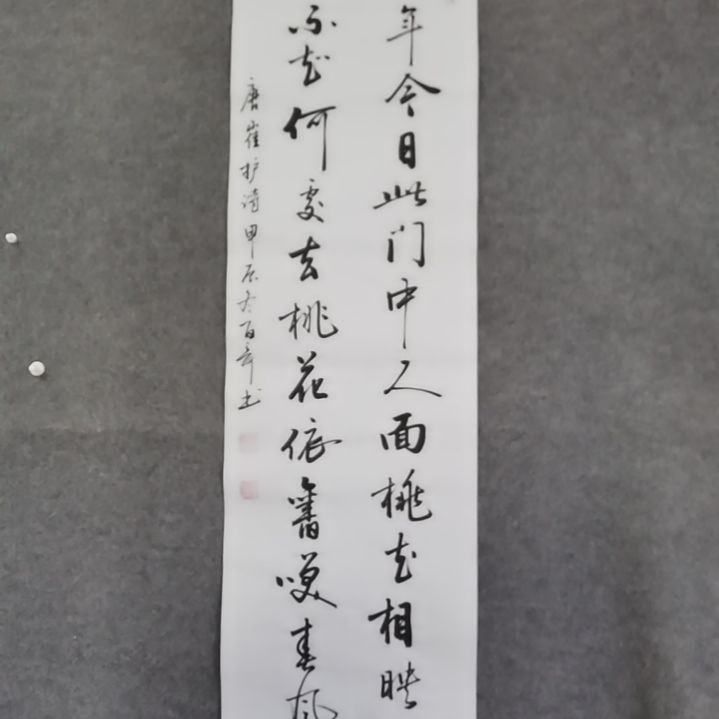 年今日此门中人面桃花相映
不知何處去桃花依舊咲春風
唐崔护诗甲辰冬百年书